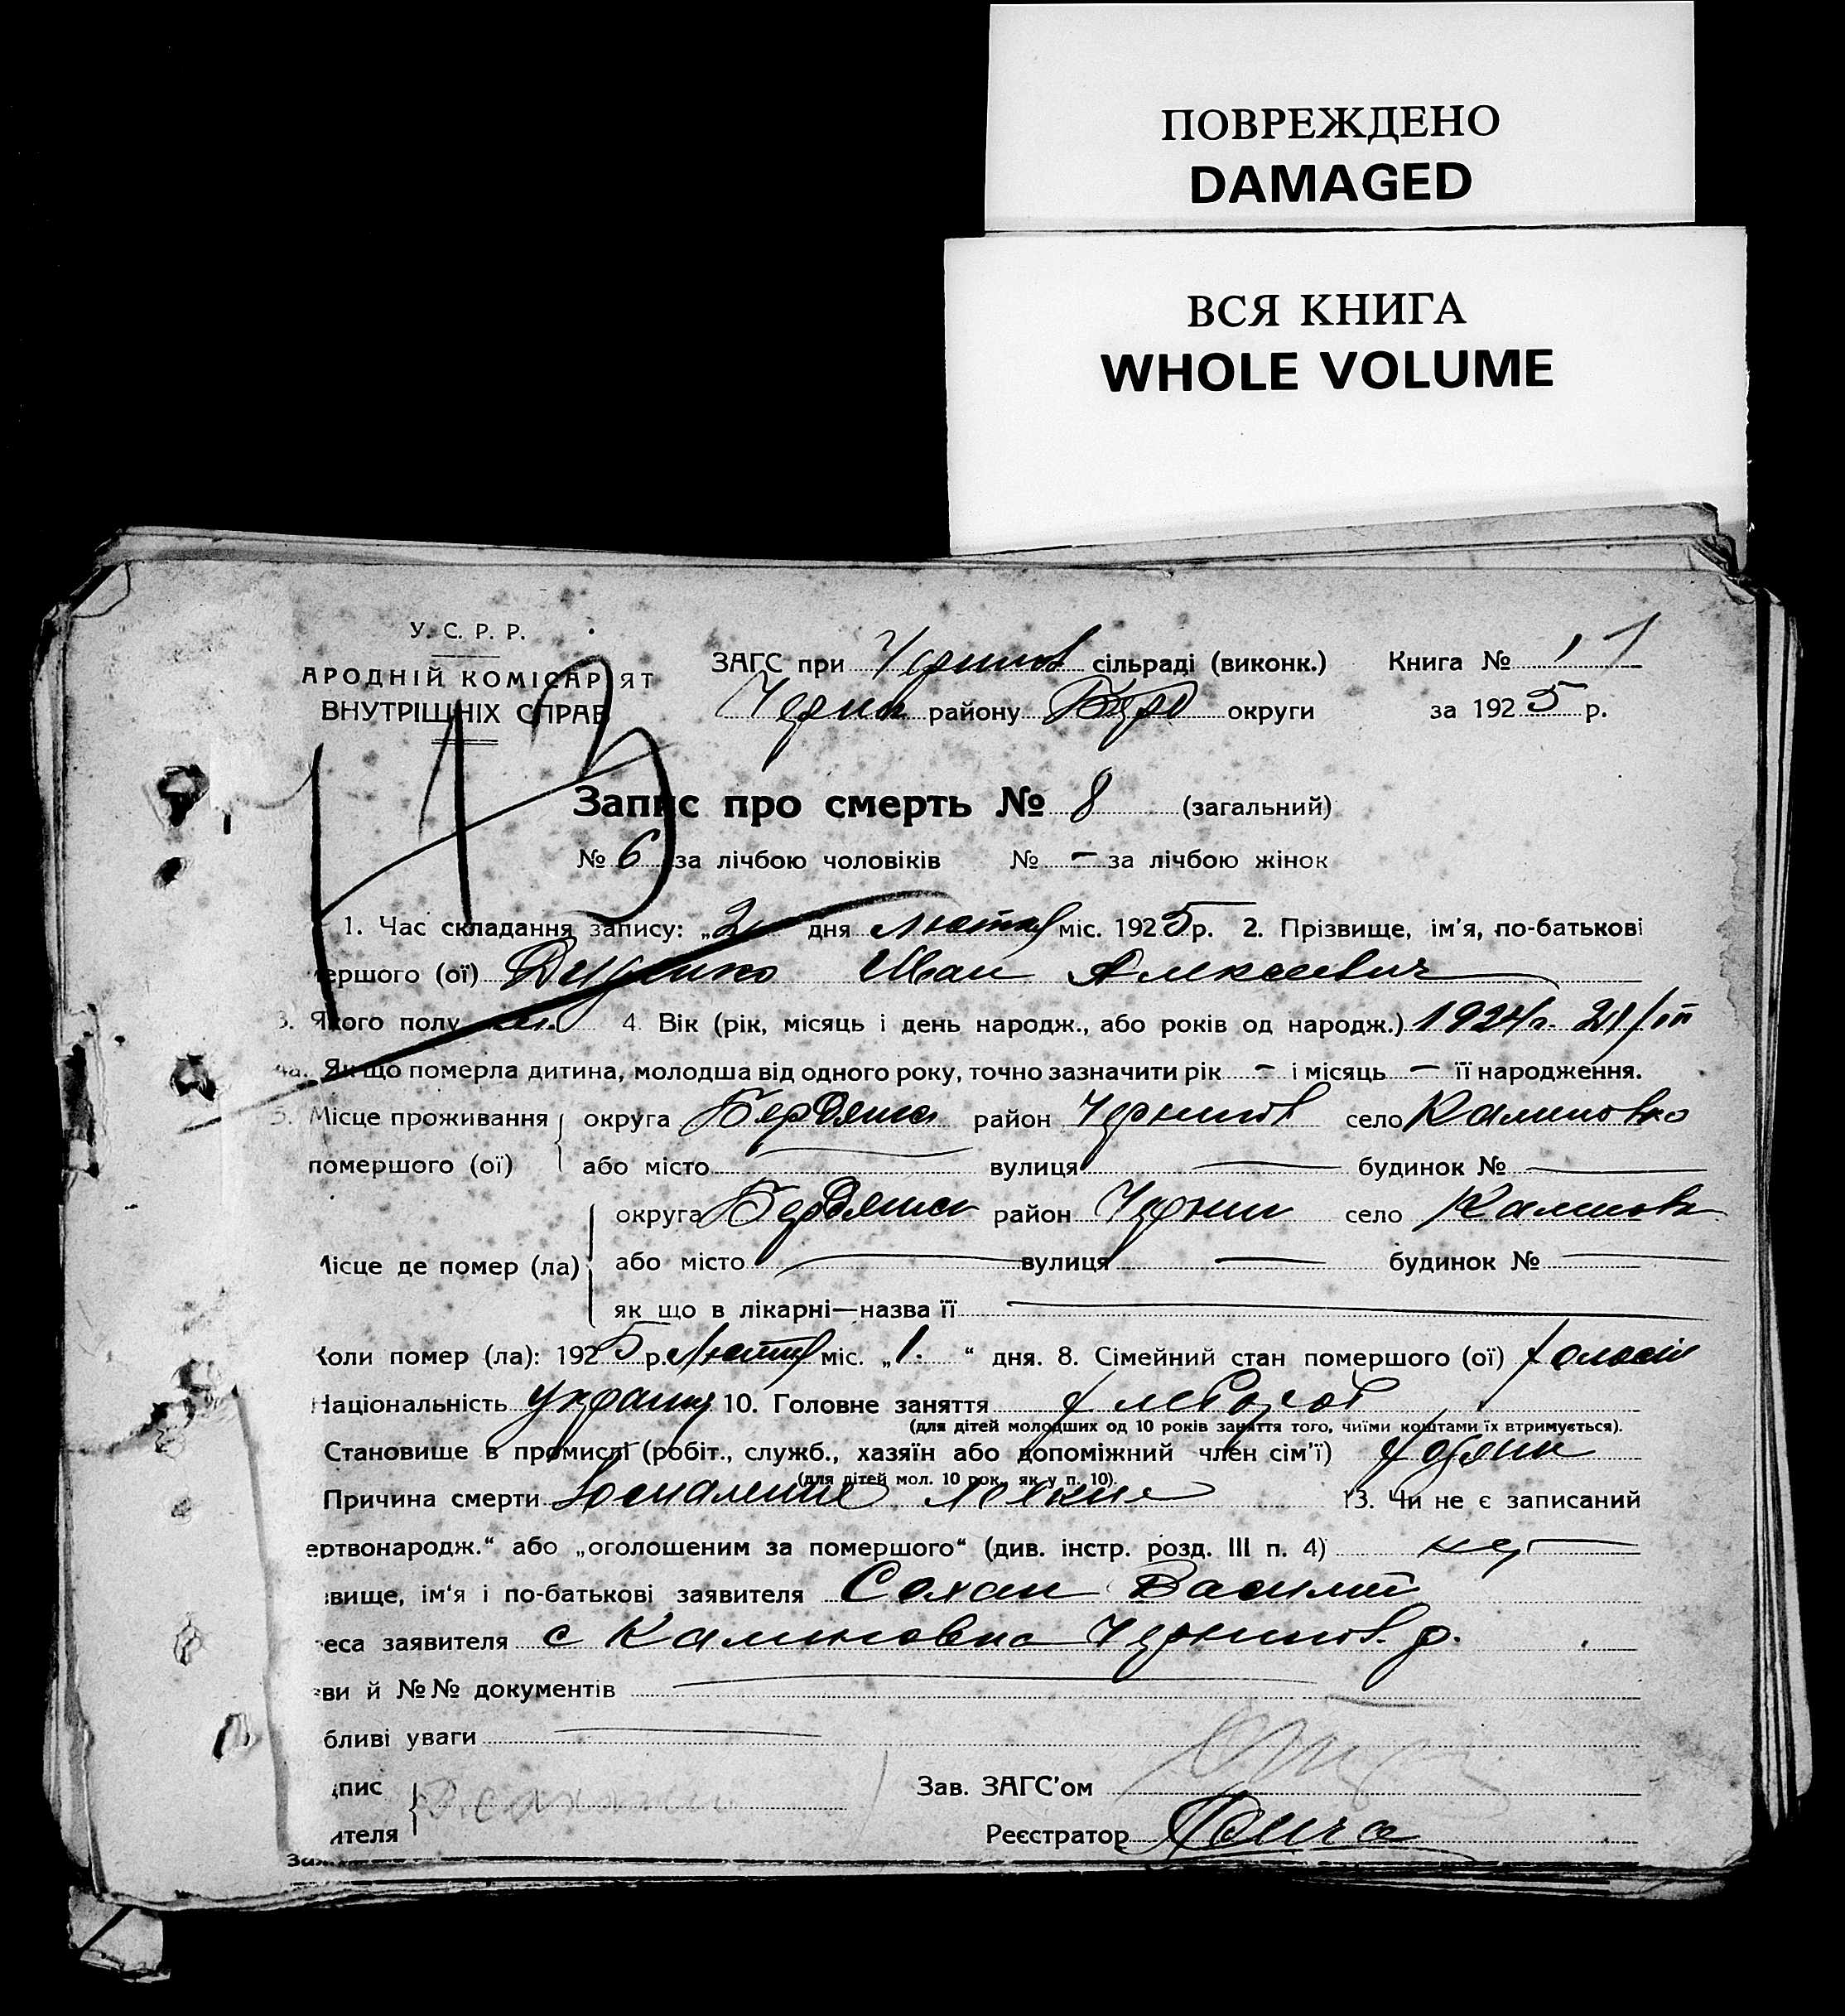 ПОВРЕЖДЕНО
DAMAGED
ВСЯ КНИГА
WHOLE VOLUME
У. С. Р. Р.
АРОДНІЙ КОМІСАР ЯТ
ВНУТРІШНІХ СПРАВ
13
ЗАГС при сільраді (виконк.) Книга № 1
району округи за 1925 р.
Запис про смерть № 8 (загальний)
№ 6 за лічбою чоловіків № – за лічбою жінок
1. Час складання запису: „2 дня лютий міс. 1925 р. 2. Прізвище, ім'я, по-батькові
ершого (ої) Иван Алексеевич
3. Якого полу 4. Вік (рік, місяць і день народж., або років од народж.) 1924 г.
4а. Як що померла дитина, молодша від одного року, точно зазначити рік – і місяць – її народження.
5. Місце проживання округа Бердянск район Чернигов село Калиновко
помершого (ої) або місто вулиця будинок №
округа Бердянск район село
Місце де помер (ла) або місто вулиця – будинок №
як що в лікарні—назва її
Коли помер (ла): 1925 р. міс. „1 “ дня. 8. Сімейний стан помершого (ої) холост
Національність украин 10. Головне заняття хлебороб
(для дітей молодших од 10 років заняття того, чиїми коштами їх втримується).
Становище в промислі (робіт., служб., хазяїн або допоміжний член сім'ї)
(для дітей мол. 10 рок., як у п. 10).
Причина смерти Воспаление легких 13. Чи не є записаний
ертвонародж.“ або „оголошеним за помершого“ (див. інстр. розд. III п. 4) нет
звище, ім'я і по-батькові заявителя Сохан Василий
еса заявителя с Калиновка Чернигов. р.
ви й №№ документів
бливі уваги
пис Зав. ЗАГС'ом
ителя Реєстратор